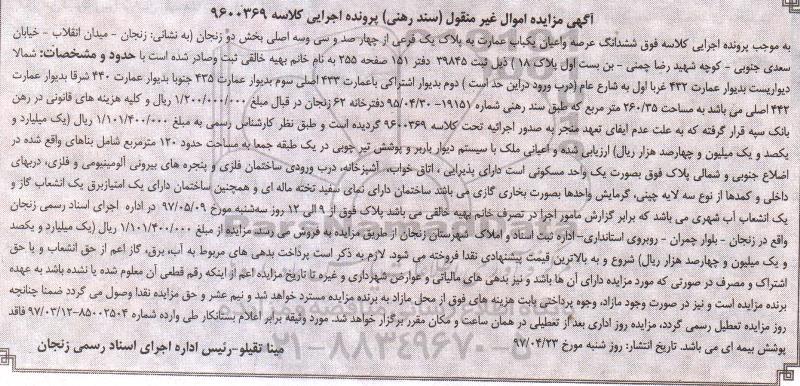 آگهی مزایده اموال غیر منقول (سند رهنی) پرونده اجرایی کلاسه ۹۶۰۰۳۶۹
به موجب پرونده اجرایی کلاسه فوق ششدانگ عرصه واعیان یکباب عمارت به پلاک یک فرعی از چهار صد و سی وسه اصلی بخش دو زنجان (به نشانی: زنجان - میدان انقلاب - خیابان
سعدی جنوبی - کوچه شهید رضا چمنی - بن بست اول پلاک ۱۸ ) ذیل ثبت ۳۹۸۴۵ دفتر ۱۵۱ صفحه ۲۵۵ به نام خانم بهیه خالقی ثبت وصادر شده است با حدود و مشخصات: شمالا
دیواریست بدیوار عمارت ۴۳۲ غربا اول به شارع عام (درب ورود دراین حد است ) دوم بدیوار اشتراکی باعمارت ۴۳۳ اصلی سوم بدیوار عمارت ۴۳۵ جنوبا بدیوار عمارت ۴۴۰ شرقا بدیوار عمارت
۴۴۲ اصلی می باشد به مساحت ۲۶۰/۳۵ متر مربع که طبق سند رهنی شماره ۱۹۱۵۱- ۹۵/۰۴/۳۰ دفترخانه ۶۲ زنجان در قبال مبلغ ۱/۲۰۰/۰۰۰/۰۰۰ ریال و کلیه هزینه های قانونی در رهن
بانک سپه قرار گرفته که به علت عدم ایفای تعهد منجر به صدور اجرائیه تحت کلاسه ۹۶۰۰۳۶۹ گردیده است و طبق نظر کارشناس رسمی به مبلغ ۱/۱۰۱/۴۰۰/۰۰۰ ریال (یک میلیارد و
یکصد و یک میلیون و چهارصد هزار ریال) ارزیابی شده و اعیانی ملک با سیستم دیوار باربر و پوشش تیر چوبی در یک طبقه جمعا به مساحت حدود ۱۲۰ مترمربع شامل بناهای واقع شده در
اضلاع جنوبی و شمالی پلاک فوق بصورت یک واحد مسکونی است دارای پذیرایی ، اتاق خواب، آشپزخانه، درب ورودی ساختمان فلزی و پنجره های بیرونی آلومینیومی و فلزی، دربهای
داخلی و کمدها از نوع سه لایه چینی، گرمایش واحدها بصورت بخاری گازی می باشد ساختمان دارای نمای سفید تخته ماله ای و همچنین ساختمان دارای یک امتیازبرق یک انشعاب گاز و
یک انشعاب آب شهری می باشد که برابر گزارش مامور اجرا در تصرف خانم بهیه خالقی می باشد پلاک فوق از ۹ الی ۱۲ روز سه‌شنبه مورخ ۹۷/۰۵/۰۹ در اداره اجرای اسناد رسمی زنجان
واقع در زنجان - بلوار چمران - روبروی استانداری- اداره ثبت اسناد و املاک شهرستان زنجان از طریق مزایده به فروش می رسد. مزایده از مبلغ ۱/۱۰۱/۴۰۰/۰۰۰ ریال (یک میلیارد و یکصد
و یک میلیون و چهارصد هزار ریال) شروع و به بالاترین قیمت پیشنهادی نقدا فروخته می شود. لازم به ذکر است پرداخت بدهی های مربوط به آب، برق، گاز اعم از حق انشعاب و یا حق
اشتراک و مصرف در صورتی که مورد مزایده دارای آن ها باشد و نیز بدهی های مالیاتی و عوارض شهرداری و غیره تا تاریخ مزایده اعم از اینکه رقم قطعی آن معلوم شده یا نشده باشد به عهده
برنده مزایده است و نیز در صورت وجود مازاد، وجوه پرداختی بابت هزینه های فوق از محل مازاد به برنده مزایده مسترد خواهد شد و نیم عشر و حق مزایده نقدا وصول می گردد ضمنا چنانچه
روز مزایده تعطیل رسمی گردد، مزایده روز اداری بعد از تعطیلی در همان ساعت و مکان مقرر برگزار خواهد شد. مورد وثیقه برابر اعلام بستانکار طی وارده شماره ۸۵۰۰۲۵۰۴-۹۷/۰۳/۱۲ فاقد
پوشش بیمه ای می باشد. تاریخ انتشار: روز شنبه مورخ ۹۷/۰۴/۲۳
مینا تقیلو-رئیس اداره اجرای اسناد رسمی زنجان
۰۲۱-۸۸۳۴۹۶۷۰-۵